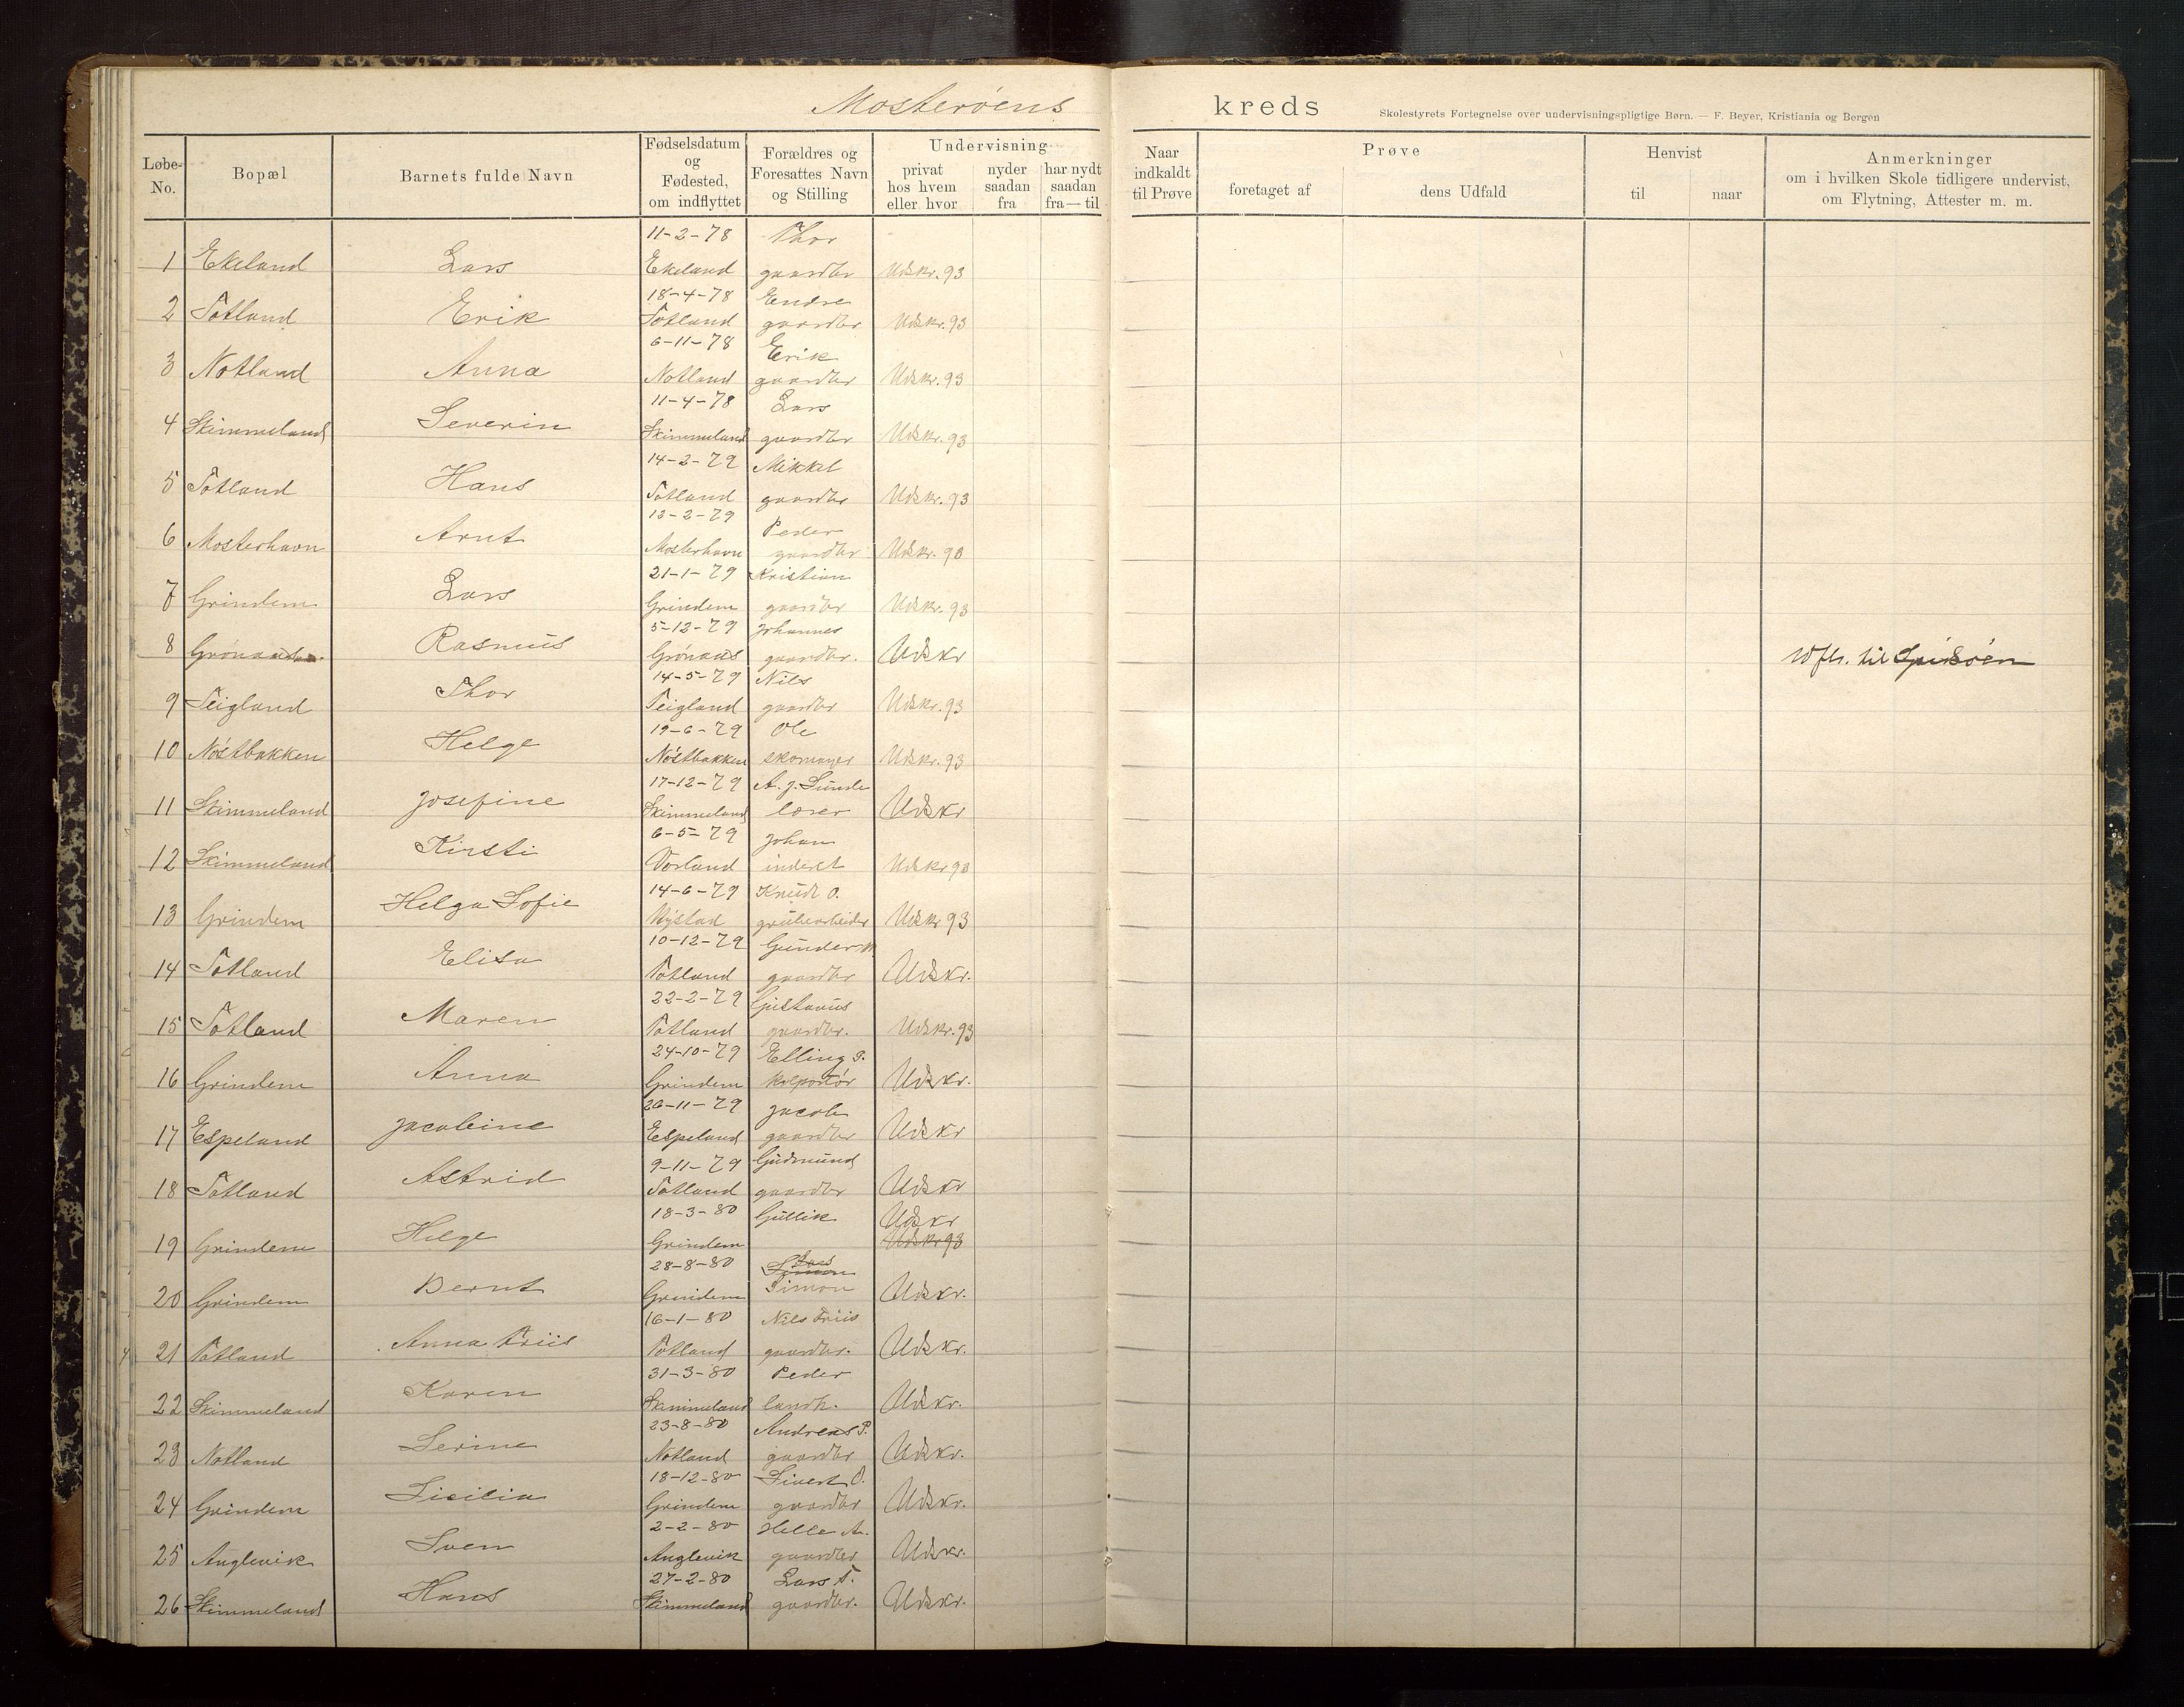 Mosterøens kreds
Skolestyrets Fortegnelse over undervisningspligtige Børn. — F. Beyer, Kristiania og Bergen
Løbe-No. Bopæl Barnets fulde Navn Fødselsdatum og Fødested, om indflyttet Forældres og Foresattes Navn og Stilling Undervisning privat hos hvem eller hvor nyder saadan fra har nydt saadan fra — til Naar indkaldt til Prøve Prøve foretaget af dens Udfald Henvist til naar Anmerkninger om i hvilken Skole tidligere undervist, om Flytning, Attester m. m.
11-2-78 Thor
1 Ekeland Lars Ekeland gaardbr Udskr. 93
18-4-78 Endre
2 Totland Erik Totland gaardbr Udskr. 93
6-11-78 Erik
3 Notland Anna Notland gaardbr Udskr. 93
11-4-78 Lars
4 Skimmeland Severin Skimmeland gaardbr Udskr. 93
14-2-79 Mikkel
5 Totland Hans Totland gaardbr Udskr. 93
13-2-79 Peder
6 Mosterhavn Arnt Mosterhavn gaardbr Udskr. 93
21-1-79 Kristian
7 Grindem Lars Grindem gaardbr Udskr. 93
5-12-79 Johannes
8 Grönaas Rasmus Grönaas gaardbr. Udskr Udfl. til Spidsöen
14-5-79 Nils
9 Teigland Thor Teigland gaardbr Udskr. 93
19-6-79 Ole
10 Nöstbakken Helge Nöstbakken skomager Udskr. 93
17-12-79 A. J. Sunde
11 Skimmeland Josefine Skimmeland lærer Udskr
6-5-79 Johan
12 Skimmeland Kirsti Vorland inderst Udskr 93
14-6-79 Knudt O.
13 Grindem Helga Sofie Nystad grubearbeider Udskr 93
10-12-79 Gunder
14 Totland Elisa Totland gaardbr Udskr.
22-2-79 Gustavus
15 Totland Maren Totland gaardbr. Udskr. 93
24-10-79 Elling
16 Grindem Anna Grindem kolportör Udskr.
26-11-79 Jacob
17 Espeland Jacobine Espeland gaardbr Udskr
9-11-79 Gudmund
18 Totland Astrid Totland gaardbr Udskr
18-3-80 Gullik Udskr
19 Grindem Helge Grindem Udskr 93
28-8-80 Lars Simon
20 Grindem Bernt Grindem Simon Udskr.
16-1-80 Nils Friis
21 Totland Anna Friis Totland gaardbr. Udskr.
31-3-80 Peder
22 Skimmeland Karen Skimmeland landh. Udskr.
23-8-80 Andreas P.
23 Notland Serine Notland gaardbr Udskr.
18-12-80 Sivert O.
24 Grindem Sicilia Grindem gaardbr Udskr.
2-2-80 Helle A.
25 Anglevik Sven Anglevik gaardbr Udskr.
27-2-80 Lars T.
26 Skimmeland Hans Skimmeland gaardbr. Udskr.